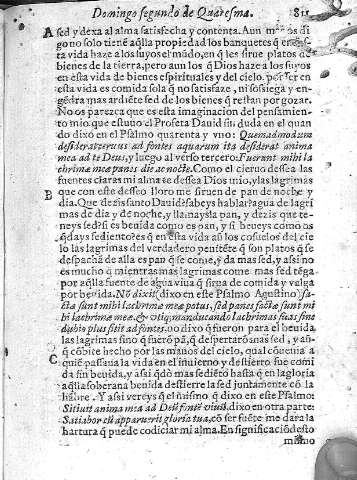 Domingo segundo de Quaresma. 811
A sed y dexa al alma satisfecha y contenta. Aun mas os di
go no solo tiene aq̃lla propiedad los banquetes q̃ en esta
vida haze a los suyos el mũdo, en q̃ les sirue platos de
bienes de la tierra, pero aun los q̃ Dios haze a los suyos
en esta vida de bienes espirituales y del cielo. por ser en
esta vida es comida sola q̃ no satisfaze, ni sossiega y en-
gẽdra mas ardiẽte sed de los bienes q̃ restan por gozar.
No os parezca que es esta imaginacion del pensamien-
to mio que estuuo el Profeta Dauid sin duda en el quan
do dixo en el Psalmo quarenta y vno: Quemadmodum
desiderat ceruus ad fontes aquarum ita desiderat anima
mea ad te Deus, y luego al verso tercero: Fuerunt mihi la
chrimæ meæ panes die ac nocte. Como el cieruo dessea las
fuentes claras mi alma se dessea Dios mio, y las lagrimas
B que con este desseo lloro me siruen de pan de noche y
dia. Que dezis santo Dauid? sabeys hablar? agua de lagri
mas de dia y de noche, y llamaysla pan, y dezis que te-
neys sed? si es beuida como es pan, y si beueys como os
q̃days sediento? es q̃ en esta vida aũ los cõsuelos del cie
lo las lagrimas del verdadero penitẽte q̃ son platos q̃ se
despachã de alla es pan q̃ se come, y da mas sed, y assi no
es mucho q̃ mientras mas lagrimas come mas sed tẽga
por aq̃lla fuente de agua viua q̃ sirua de comida y valga
por beuida. Nõ dixit (dixo en este Psalmo Agustino) fa-
cta sunt mihi lachrimæ meæ potus, sed panes factæ sunt mi
hi lachrimæ meæ & vtiq; manducando lachrimas suas sine
dubio plus sitit ad fontes. no dixo q̃ fueron para el beuida
las lagrimas sino q̃ fuerõ pã, q̃ despertarõ mas sed, y aũ-
C q̃ cõbite hecho por las manos del cielo, qual cõuenia a
quiẽ passaua la vida en el inuierno y destierro fue comi
da sin beuida, y assi q̃dò mas sediẽto hasta q̃ en la gloria
aq̃lla soberana beuida destierre la sed juntamente cõ la
hãbre. Y assi vereys que el mismo q̃ dixo en este Psalmo:
Sitiuit anima mea ad Deũ fontẽ viuũ. dixo en otra parte:
Satiabor cũ apparuerit gloria tua, cõ ser fuẽte me dara la
hartura q̃ puede codiciar mi alma. En significaciõ desto
mismo